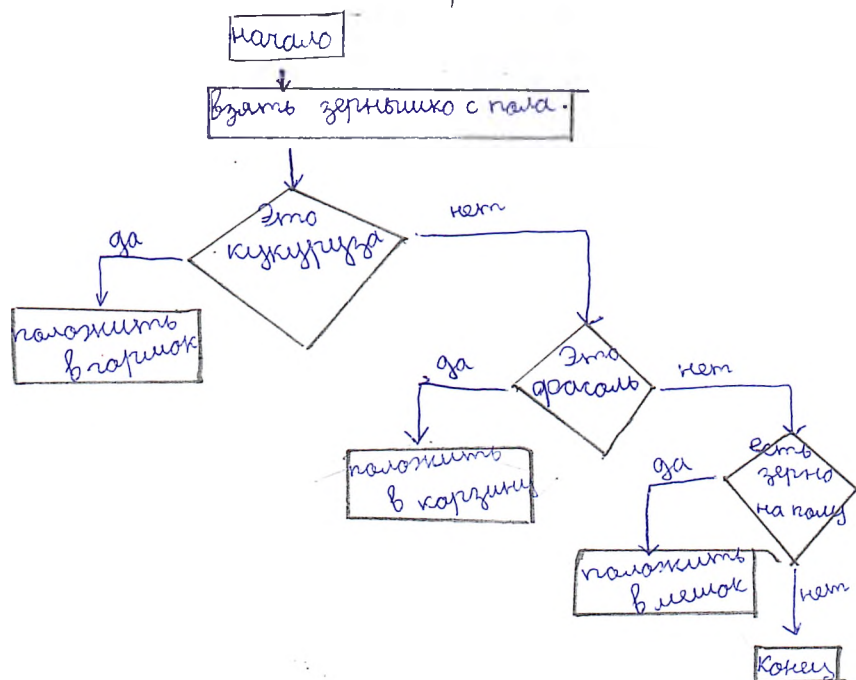 начало
взять зернышко с пола.
Это
кукуруза
да
нет
положить
в горшок
Это
фасоль
да
нет
положить
в корзину
есть
зерно
на полу
да
положить
в мешок
нет
конец